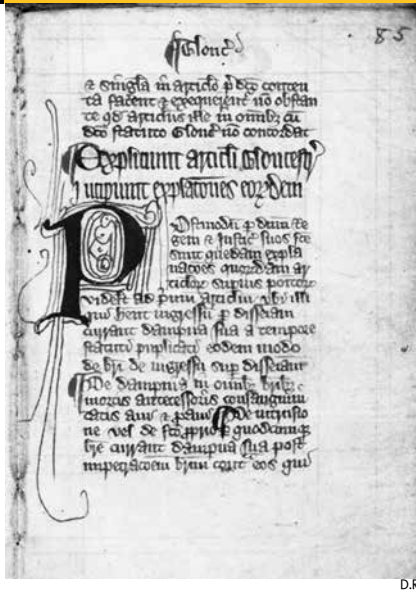 85
Glouc
& singla in articlo p̄dco conten
ta facent & exequerent nō obstan
te qd articlus ille in omnibz cū
dco statuto Glouc nō concordat
Expliciunt articli Gloucestr
Incipiunt explatoēs eorzdem
Postmodū p dnm Re
gem & Justic suos fce
sunt quedam expla
natoēs quorzdam ar
ticlor supius positor
videlt ad pimū articlm ubi illi
qui hent ingressū p disseisam
currant dampna sua a tempore
statuti puplicati eodem modo
de bri de ingressu sup disseisam
De dampnis in omibz bribz
mortis antecessoris consanguini
tatis aui & proaui De intrusio
ne vel de fco pprio p quodcumqz
bre currant dampna sua post
impetracoem brium contra eos qui
D.R